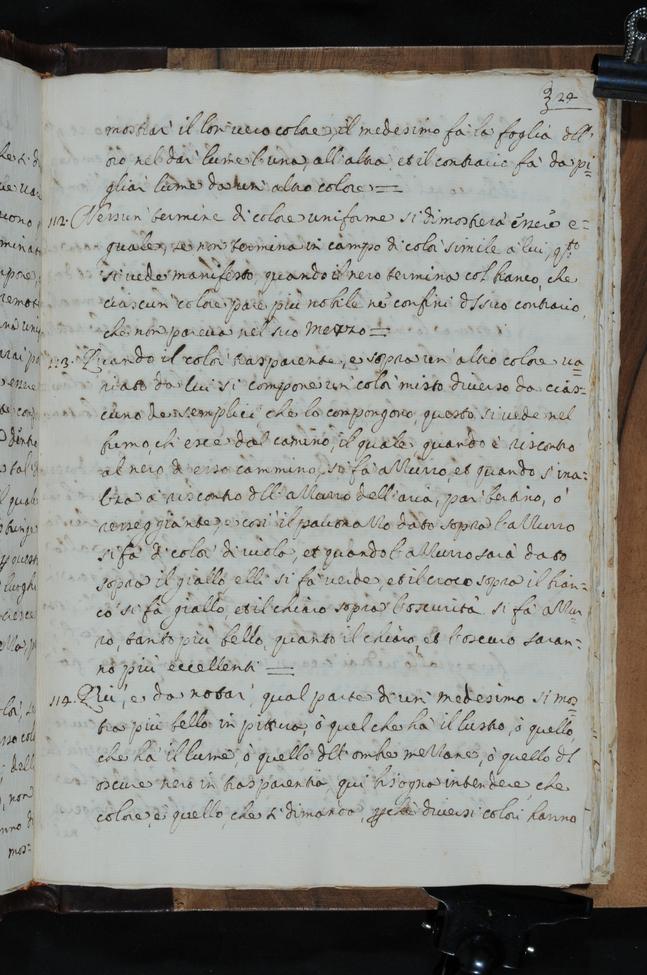 24
mostrar il lor vero colore, il medesimo fà la foglia dell'
oro nel dar lume l'una, all'altra, et il contrario fà da pi=
gliar lume da un altro colore =
112. Nessun termine di colore uniforme si dimostrerà essere e=
guale, se non termina in campo di color simile a lui, qsto
si vede manifesto quando il nero termina col bianco, che
ciascun colore pare più nobile ne confini del suo contrario,
che non parerà nel suo mezzo =
113. Quando il color trasparente, e sopra un altro colore va=
riato da lui si compone un color misto diverso da cias=
cuno de semplici, che lo compongono, questo si vede nel
fumo, ch' esce dal camino, il quale quando è riscontro
al nero di esso cammino, si fà azzurro, et quando s' ina=
lza a riscontro dell' azzurro dell'aria, par bertino, ò
rosseggiante, e così il pavonazzo dato sopra l'azzurro
si fà di color di viola, et quando l'azzurro sarà dato
sopra il giallo elli si fà verde, et il croco sopra il bian=
co si fà giallo, et il chiaro sopra l'oscurità si fà azzur=
ro, tanto più bello, quanto il chiaro, et l'oscuro saran=
no più eccellenti =
114. Qui, e da notar, qual parte di un medesimo si mos=
tra più bello in pittura, ò quel che hà il lustro, ò quello,
che hà il lume, ò quello dell' ombre mezzane, ò quello dl
oscure nero in trasparentia, qui bisogna intendere, che
colore, è quello, che ti dimanda, perche diversi colori hanno